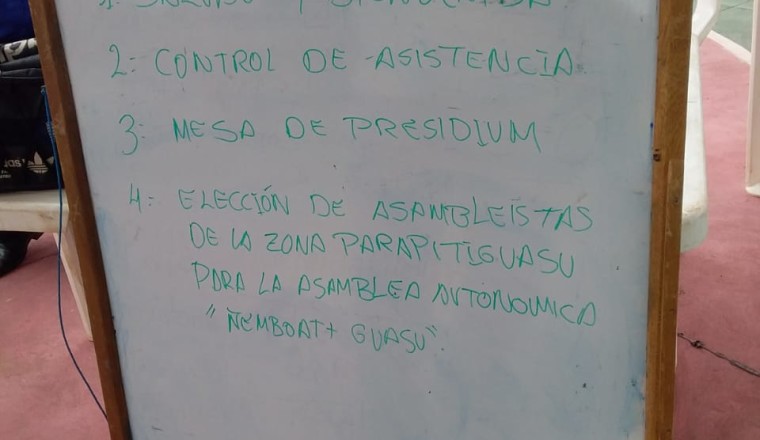 2: CONTROL DE ASISTENCIA
3: MESA DE PRESIDIUM
4: ELECCIÓN DE ASAMBLEISTAS
DE LA ZONA PARAPITIGUASU
PARA LA ASAMBLEA AUTONOMICA
"ÑEMBOAT+ GUASU".